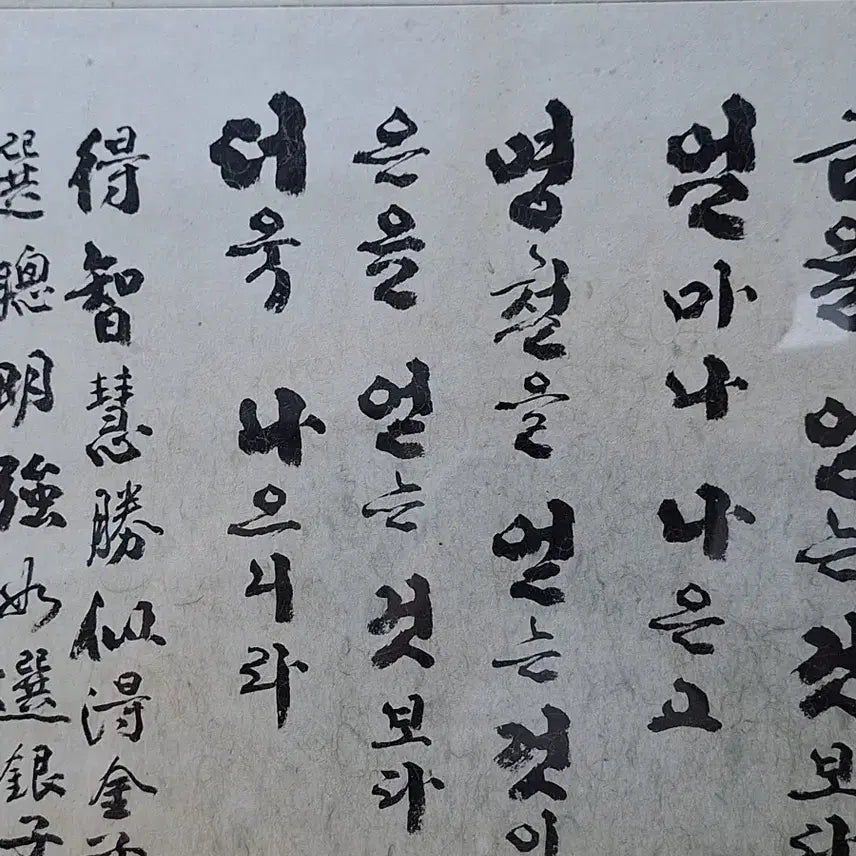 금을 얻는 것보다
얼마나 나은고
명철을 얻는 것이
은을 얻는 것보다
더욱 나으니라
得智慧勝似得金
選聰明強如選銀子